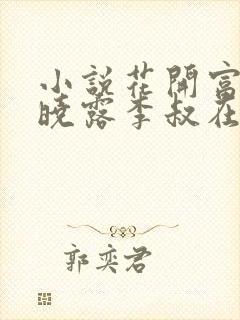 小說花開富
曉露李叔在
郭奕君